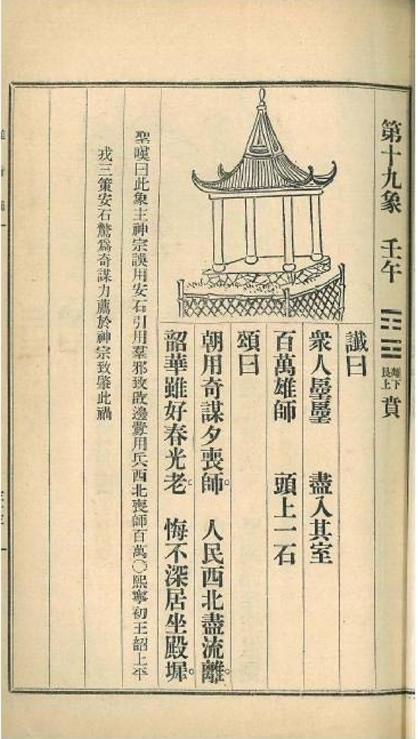 第十九象 壬午 ䷕ 離下 艮上 賁
讖曰
衆人嚚嚚 盡入其室
百萬雄師 頭上一石
頌曰
朝用奇謀夕喪師。 人民西北盡流離。
韶華雖好春光老。 悔不深居坐殿墀。
聖嘆曰此象主神宗誤用安石引用羣邪致啟邊釁用兵西北喪師百萬〇熙寧初王韶上平
戎三策安石驚爲奇謀力薦於神宗致肇此禍